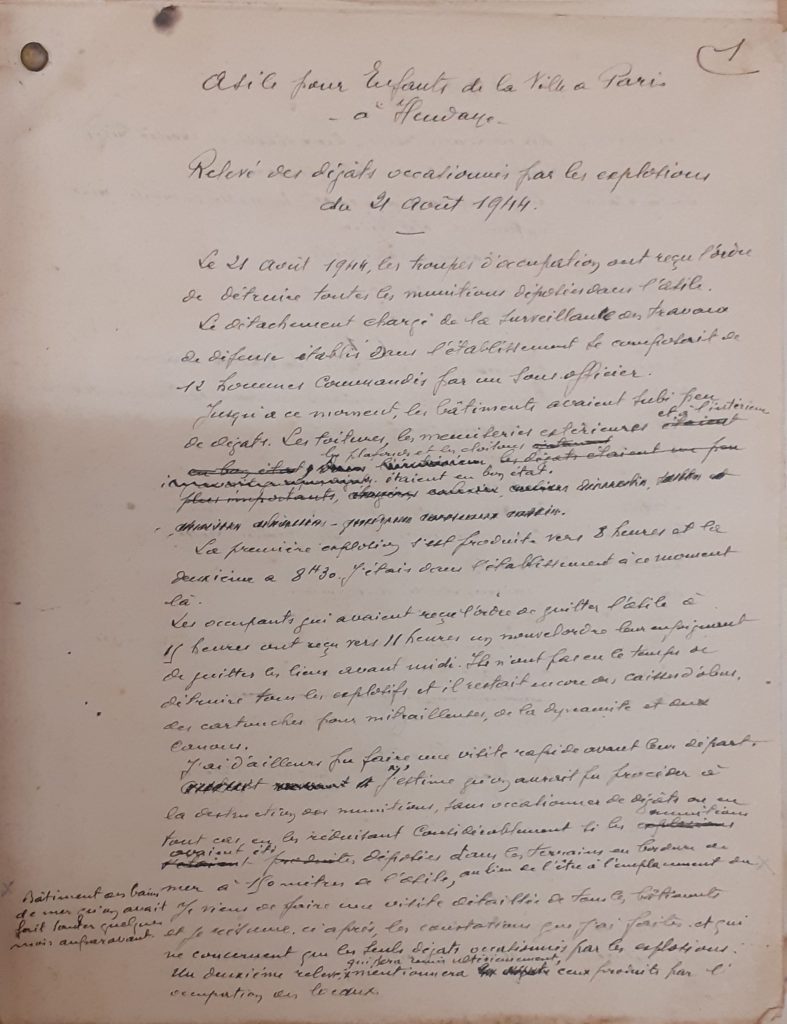 1
Asile pour Enfants de la Ville de Paris
- à Hendaye -
Relevé des dégâts occasionnés par les explosions
du 21 Août 1944.
Le 21 Août 1944, les troupes d'occupation ont reçu l'ordre
de détruire toutes les munitions déposées dans l'Asile.
Le détachement chargé de la surveillance des travaux
de défense établis dans l'établissement se composait de
12 hommes commandés par un sous-officier.
Jusqu'à ce moment, les bâtiments avaient subi peu
de dégâts. Les toitures, les menuiseries extérieures et à l'intérieur étaient
en bon état, les plafonds et les cloisons les dégâts étaient un peu
étaient en bon état.
plus importants,
La première explosion s'est produite vers 8 heures et la
deuxième à 8H30. J'étais dans l'établissement à ce moment
là.
Les occupants qui avaient reçu l'ordre de quitter l'asile à
15 heures ont reçu vers 11 heures un nouvel ordre leur enjoignant
de quitter les lieux avant midi. Ils n'ont pas eu le temps de
détruire tous les explosifs et il restait encore des caisses d'obus,
des cartouches pour mitrailleuses, de la dynamite et deux
canons.
J'ai d'ailleurs pu faire une visite rapide avant leur départ.
J'estime qu'on aurait pu procéder à
la destruction des munitions, sans occasionner de dégâts ou en
tout cas, en les réduisant considérablement si les explosions munitions
avaient été produites déposées dans les terrains en bordure de
mer à 150 mètres de l'asile, au lieu de l'être à l'emplacement du x
x Bâtiment des bains
de mer qu'on avait
fait sauter quelques
mois auparavant.
Je viens de faire une visite détaillée de tous les bâtiments
et je résume, ci après, les constatations que j'ai faites et qui
ne concernent que les seuls dégâts occasionnés par les explosions.
Un deuxième relevé, qui sera remis ultérieurement, mentionnera ceux produits par l'
occupation des locaux.